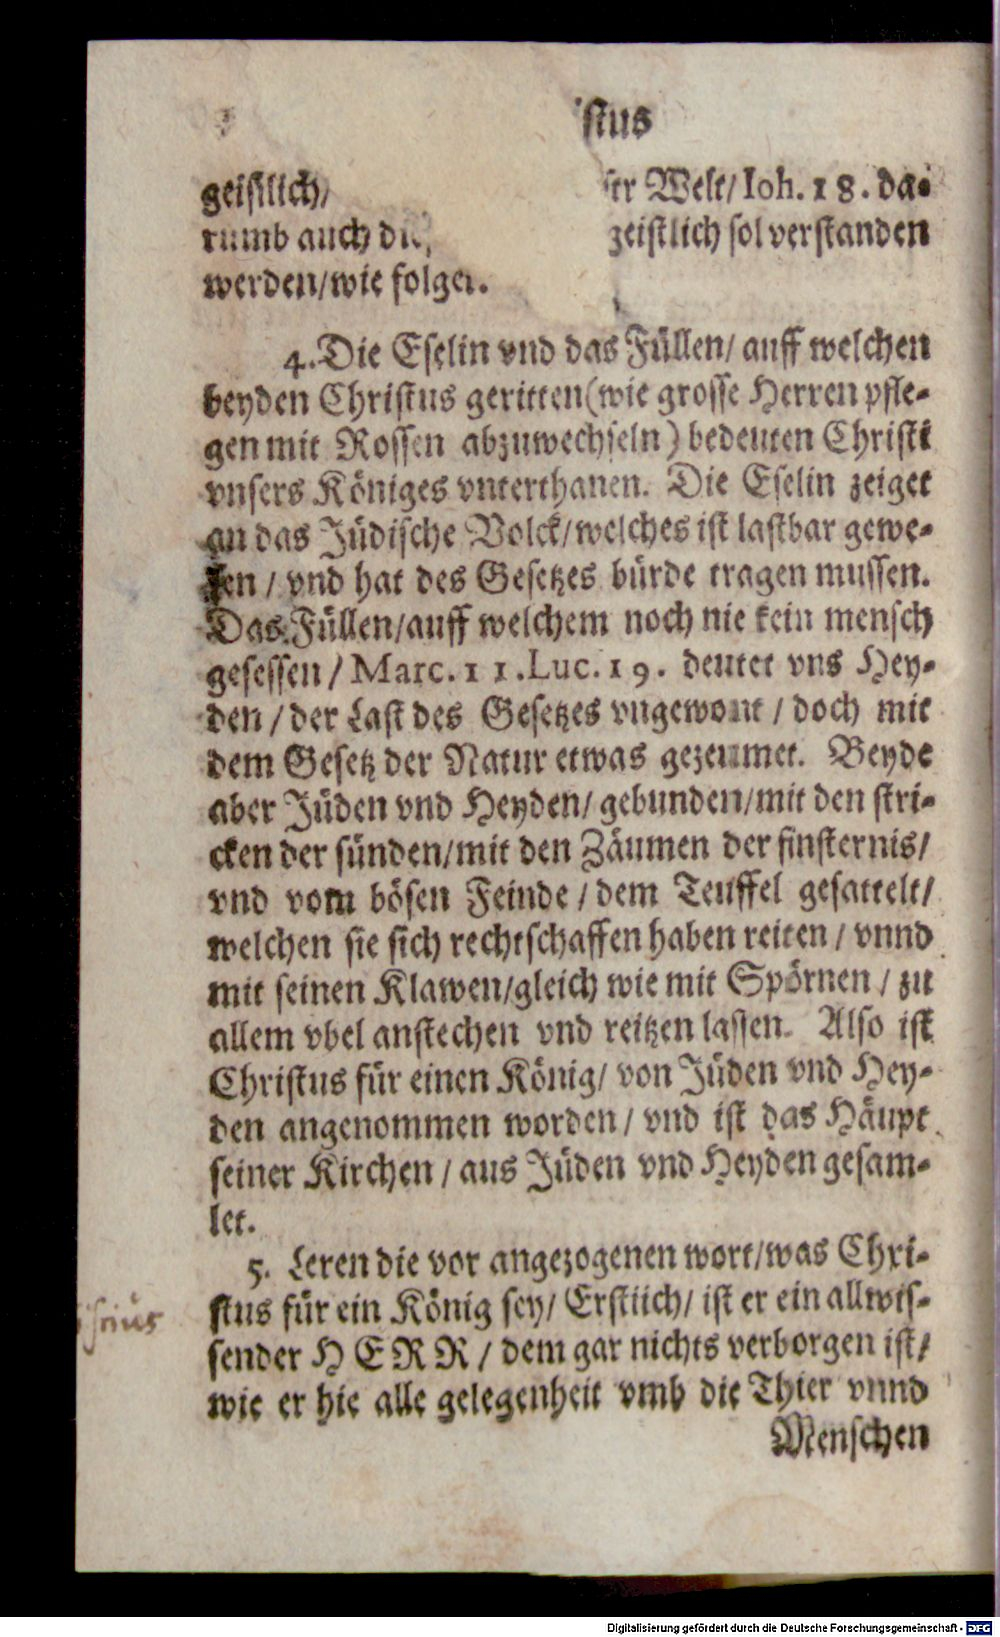 stus
geistlich/ Welt/ Ioh. 18. da-
rumb auch geistlich sol verstanden
werden/wie folget.
4. Die Eselin vnd das Füllen/ auff welchen
beyden Christus geritten (wie grosse Herren pfle-
gen mit Rossen abzuwechseln) bedeuten Christi
vnsers Königes vnterthanen. Die Eselin zeiget
an das Jüdische Volck/welches ist lastbar gewe-
sen / vnd hat des Gesetzes bürde tragen mussen.
Das Füllen/auff welchem noch nie kein mensch
gesessen / Marc. 11. Luc. 19. deutet vns Hey-
den / der Last des Gesetzes vngewont / doch mit
dem Gesetz der Natur etwas gezeumet. Beyde
aber Jüden vnd Heyden/ gebunden/mit den stri-
cken der sünden/mit den Zäumen der finsternis/
vnd vom bösen Feinde / dem Teuffel gesattelt/
welchen sie sich rechtschaffen haben reiten / vnnd
mit seinen Klawen/gleich wie mit Spörnen / zu
allem vbel anstechen vnd reitzen lassen. Also ist
Christus für einen König/ von Jüden vnd Hey-
den angenommen worden / vnd ist das Häupt
seiner Kirchen / aus Jüden vnd Heyden gesam-
let.
5. Leren die vor angezogenen wort/was Chri-
stus für ein König sey/ Erstlich/ ist er ein allwis-
sender HERR / dem gar nichts verborgen ist/
wie er hie alle gelegenheit vmb die Thier vnnd
Menschen
Digitalisierung gefördert durch die Deutsche Forschungsgemeinschaft - DFG